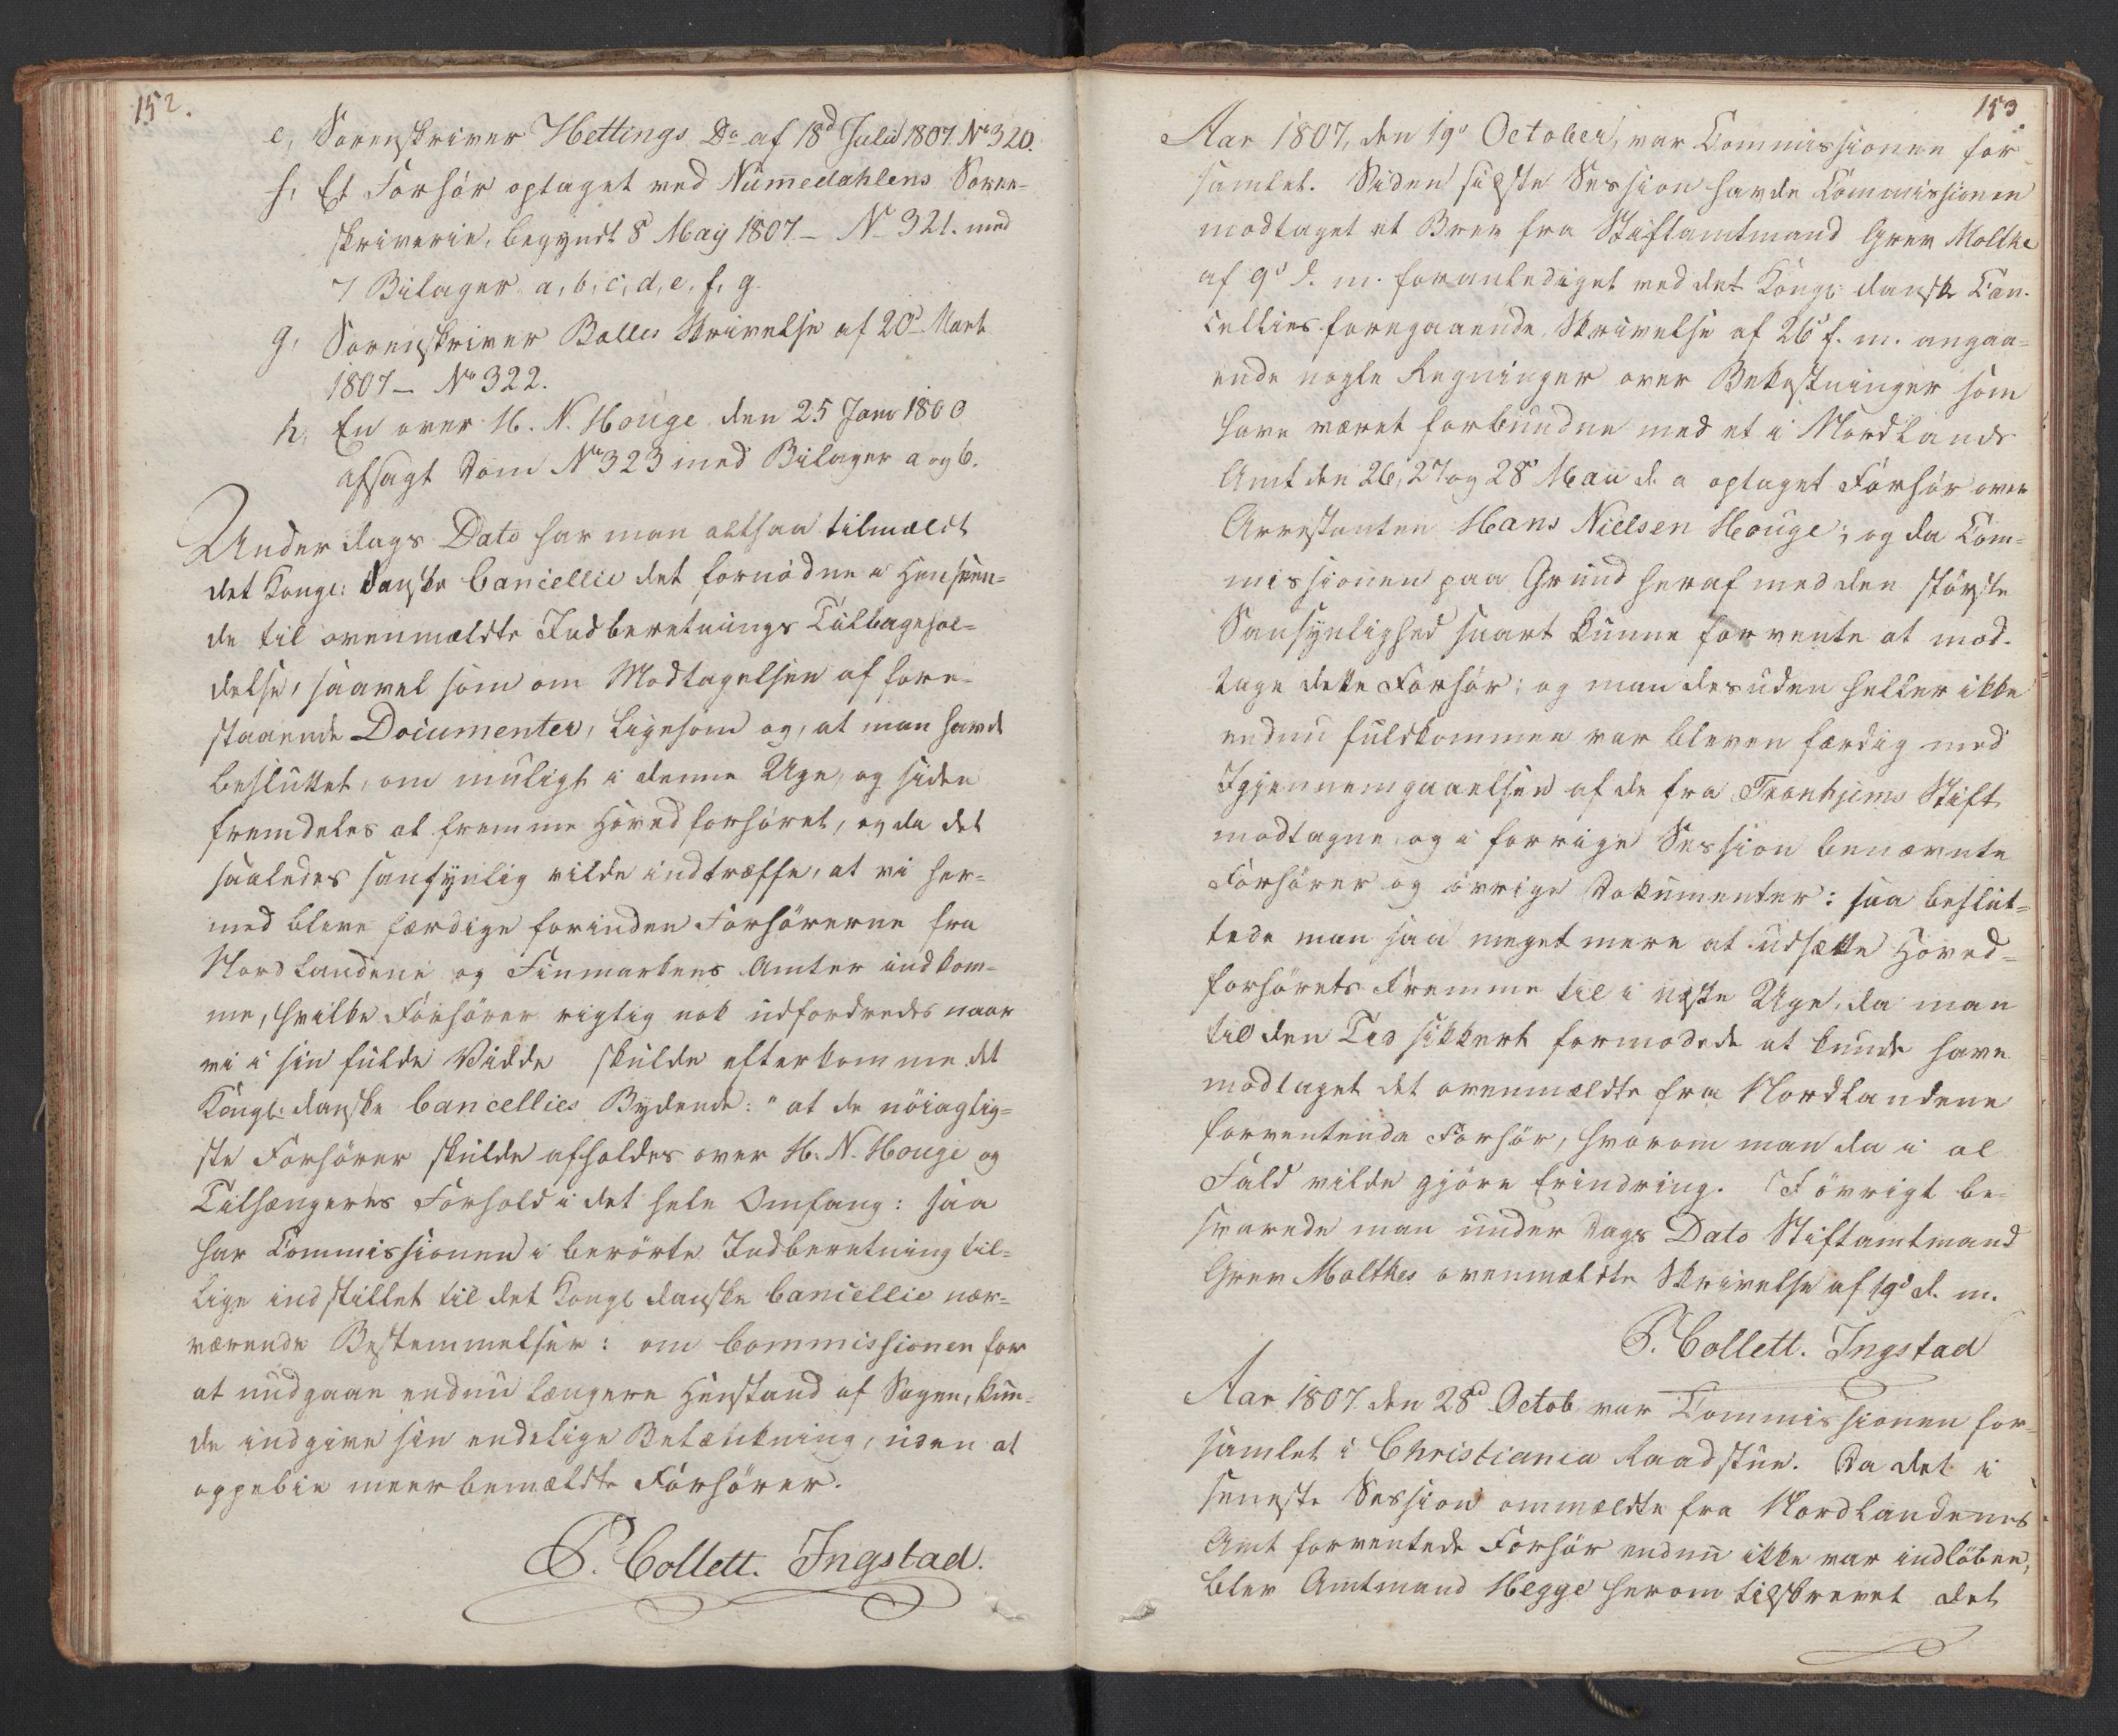 152.
e, Sorenskriver Hettings Do af 18d Julii 1807. No 320.
f, Et Forhör optaget ved Nummedahlens Soren-
skriverie, begyndt 8 May 1807 – No 321. med
7 Bilager a, b, c, d, e, f, g.
g, Sorenskriver Balles Skrivelse af 20d Mart
1807 – No 322.
h, En over H. N. Houge den 25 Janv 1800
afsagt Dom No 323 med Bilager a og b.
Under dags Dato har man altsaa tilmældt
det Kongl: danske Cancellie det fornödne i Henseen-
de til ovenmældte Indberetnings Tilbagehol-
delse, saavel som om Modtagelsen af fore-
staaende Documenter, ligesom og, at man havde
besluttet, om muligt i denne Uge, og siden
fremdeles at fremme Hovedforhöret, og da det
saaledes sansynlig vilde indtræffe, at vi her-
med bleve færdige forinden Forhörerne fra
Nordlandene og Finmarkens Amter indkom-
me, hvilke Forhörer rigtig nok udfordredes naar
vi i sin fulde Vidde skulde efterkomme det
Kongl: danske Cancellies Bydende: "at de nöiagtig-
ste Forhörer skulde afholdes over H. N. Houge og
Tilhængeres Forhold i det hele Omfang: saa
har Commissionen i berörte Indberetning til-
lige indstillet til det Kongl danske Cancellie nær-
værende Bestemmelser: om Commissionen for
at undgaae endnu længere Henstand af Sagen, kun-
de indgive sin endelige Betænkning, uden at
oppebie meerbemældte Forhörer.
P. Collett. Ingstad.
153
Aar 1807, den 19d October, var Commissionen for-
samlet. Siden sidste Session havde Commissionen
modtaget et Brev fra Stiftamtmand Grev Moltke
af 9d d. m. foranlediget ved det Kongl: danske Can-
cellies foregaaende Skrivelse af 26d f. m. angaa-
ende nogle Regninger over Bekostninger som
have været forbundne med et i Nordlands
Amt den 26, 27 og 28d Maii d. a optaget Forhör over
Arrestanten Hans Nielsen Houge; og da Com-
missionen paa Grund heraf med den störste
Sansynlighed snart kunne forvente at mod-
tage dette Forhör; og man desuden heller ikke
endnu fuldkommen var bleven færdig med
Igjennemgaaelsen af de fra Tronhjems Stift
modtagne, og i forrige Session benævnte
Forhörer og övrige Dokumenter: saa beslut-
tede man saa meget mere at udsætte Hoved-
forhörets Fremme til i næste Uge, da man
til den Tid sikkert formodede at kunde have
modtaget det ovenmældte fra Nordlandene
forventende Forhör, hvorom man da i al
Fald vilde gjöre Erindring. I övrigt be-
svarede man under Dags Dato Stiftamtmand
Grev Moltkes ovenmældte Skrivelse af 19d d. m.
P. Collett. Ingstad
Aar 1807. den 28d Octob var Commissionen for-
samlet i Christiania Raadstue. Da det i
seneste Session ommældte fra Nordlandenes
Amt forventede Forhör endnu ikke var indlöben,
blev Amtmand Hegge herom tilskrevet det